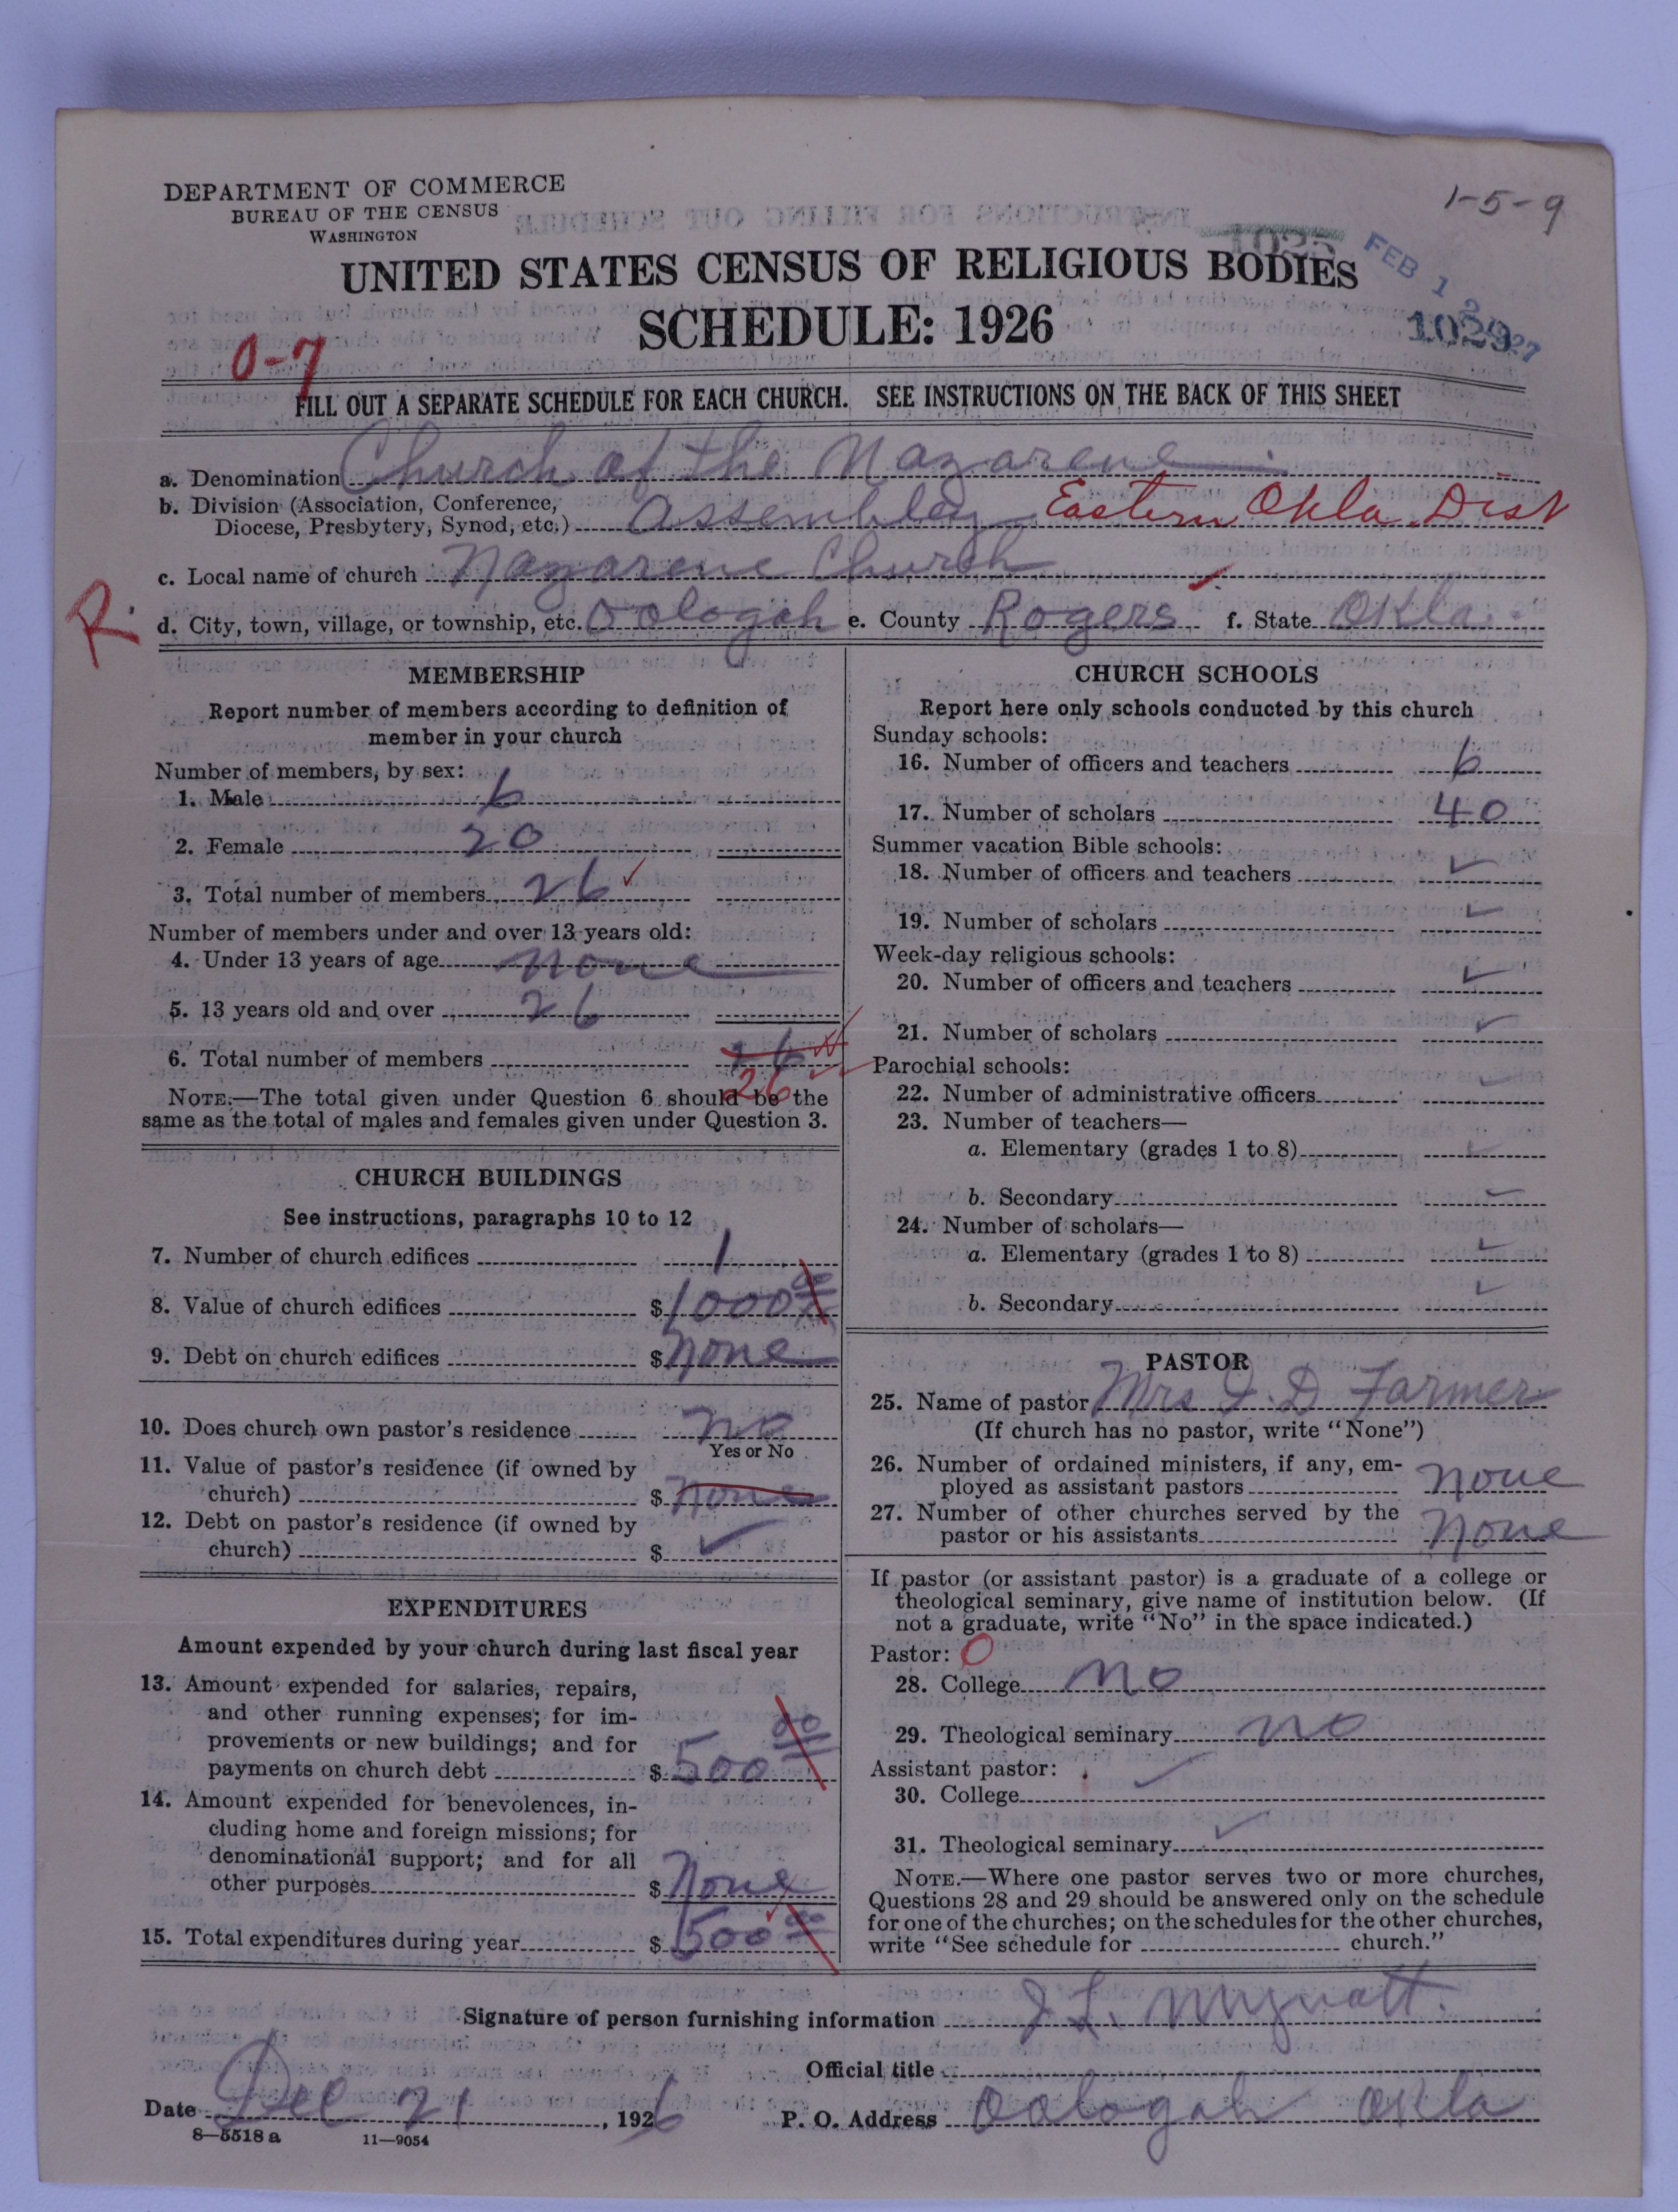 1-5-9
DEPARTMENT OF COMMERCE
BUREAU OF THE CENSUS
WASHINGTON
FEB 12 1927
1029
UNITED STATES CENSUS OF RELIGIOUS BODIES
SCHEDULE: 1926
0-7
FILL OUT A SEPARATE SCHEDULE FOR EACH CHURCH. SEE INSTRUCTIONS ON THE BACK OF THIS SHEET
a. Denomination Church of the Nazarene
b. Division (Association, Conference,
Diocese, Presbytery, Synod, etc.) Assembley Eastern Okla. Dist
c. Local name of church Nazarene Church
R.
d. City, town, village, or township, etc. Oologah e. County Rogers f. State Okla.
MEMBERSHIP
Report number of members according to definition of
member in your church
Number of members, by sex:
1. Male 6
2. Female 20
3. Total number of members 26 ✓
Number of members under and over 13 years old:
4. Under 13 years of age None
5. 13 years old and over 26
6. Total number of members 26
26
NOTE.—The total given under Question 6 should be the
same as the total of males and females given under Question 3.
CHURCH BUILDINGS
See instructions, paragraphs 10 to 12
7. Number of church edifices 1
8. Value of church edifices $1000 00
9. Debt on church edifices $ None
10. Does church own pastor's residence No
Yes or No
11. Value of pastor's residence (if owned by
church) $ None
12. Debt on pastor's residence (if owned by
church) $ ✓
EXPENDITURES
Amount expended by your church during last fiscal year
13. Amount expended for salaries, repairs,
and other running expenses; for im-
provements or new buildings; and for
payments on church debt $ 500 00
14. Amount expended for benevolences, in-
cluding home and foreign missions; for
denominational support; and for all
other purposes $ None
15. Total expenditures during year $ 500 00
CHURCH SCHOOLS
Report here only schools conducted by this church
Sunday schools:
16. Number of officers and teachers 6
17. Number of scholars 40
Summer vacation Bible schools:
18. Number of officers and teachers ✓
19. Number of scholars ✓
Week-day religious schools:
20. Number of officers and teachers ✓
21. Number of scholars ✓
Parochial schools:
22. Number of administrative officers ✓
23. Number of teachers—
a. Elementary (grades 1 to 8) ✓
b. Secondary ✓
24. Number of scholars—
a. Elementary (grades 1 to 8) ✓
b. Secondary ✓
PASTOR
25. Name of pastor Mrs I. D Farmer
(If church has no pastor, write "None")
26. Number of ordained ministers, if any, em-
ployed as assistant pastors None
27. Number of other churches served by the
pastor or his assistants None
If pastor (or assistant pastor) is a graduate of a college or
theological seminary, give name of institution below. (If
not a graduate, write "No" in the space indicated.)
Pastor: 0
28. College No
29. Theological seminary No
Assistant pastor: ✓
30. College
31. Theological seminary ✓
NOTE.—Where one pastor serves two or more churches,
Questions 28 and 29 should be answered only on the schedule
for one of the churches; on the schedules for the other churches,
write "See schedule for church."
Signature of person furnishing information J L. Mynatt.
Official title
Date Dec 21, 1926 P. O. Address Oologah Okla
8—5518 a 11—9054